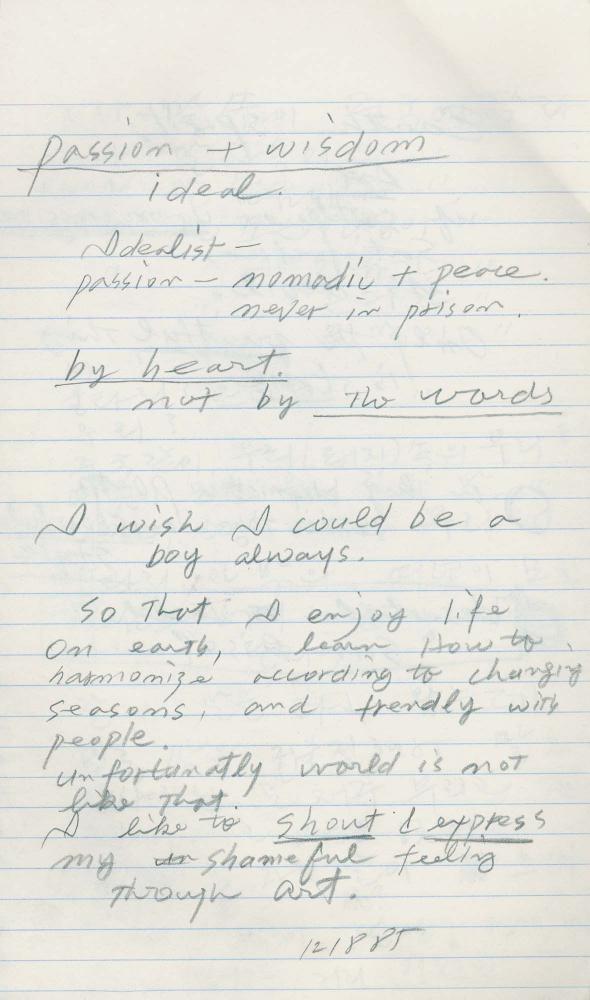 passion + wisdom
ideal.
Idealist —
passion — nomadic + peace.
never in prison.
by heart.
not by the words
I wish I could be a
boy always.
so that I enjoy life
on earth, learn how to
harmonize according to changing
seasons, and frendly with
people.
unfortunatly world is not
like that.
I like to shout & express
my shameful feeling
through art.
121885